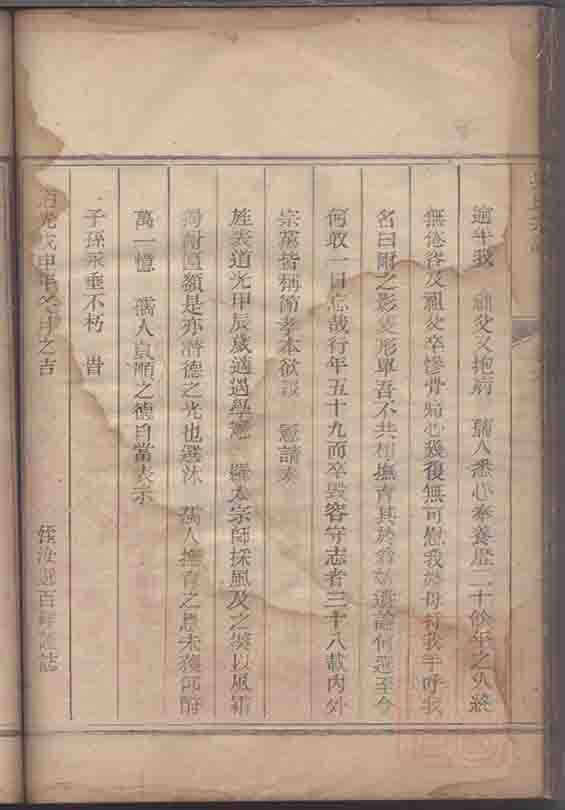 逾年我 祖父又抱病 孺人悉心奉養歷二十餘年之久終
無倦容及祖父卒慘骨痛心幾復無可慰我 母持我手呼我
名曰爾之影隻形單吾不共相撫育其於 遺論何迨至今
何敢一日忘哉行年五十九而卒毀容守志者三十八載內外
宗黨皆稱節孝本欲報 憲請奏
旌表道光甲辰歲適遇學憲 羅大宗師採風及之獎以風霜
匾額是亦潛德之光也選沐 孺人撫育之恩未獲
萬一憶 孺人貞順之德自當表示
子孫永垂不朽 旹
道光戊申年冬月之吉 侄汝選百拜謹誌